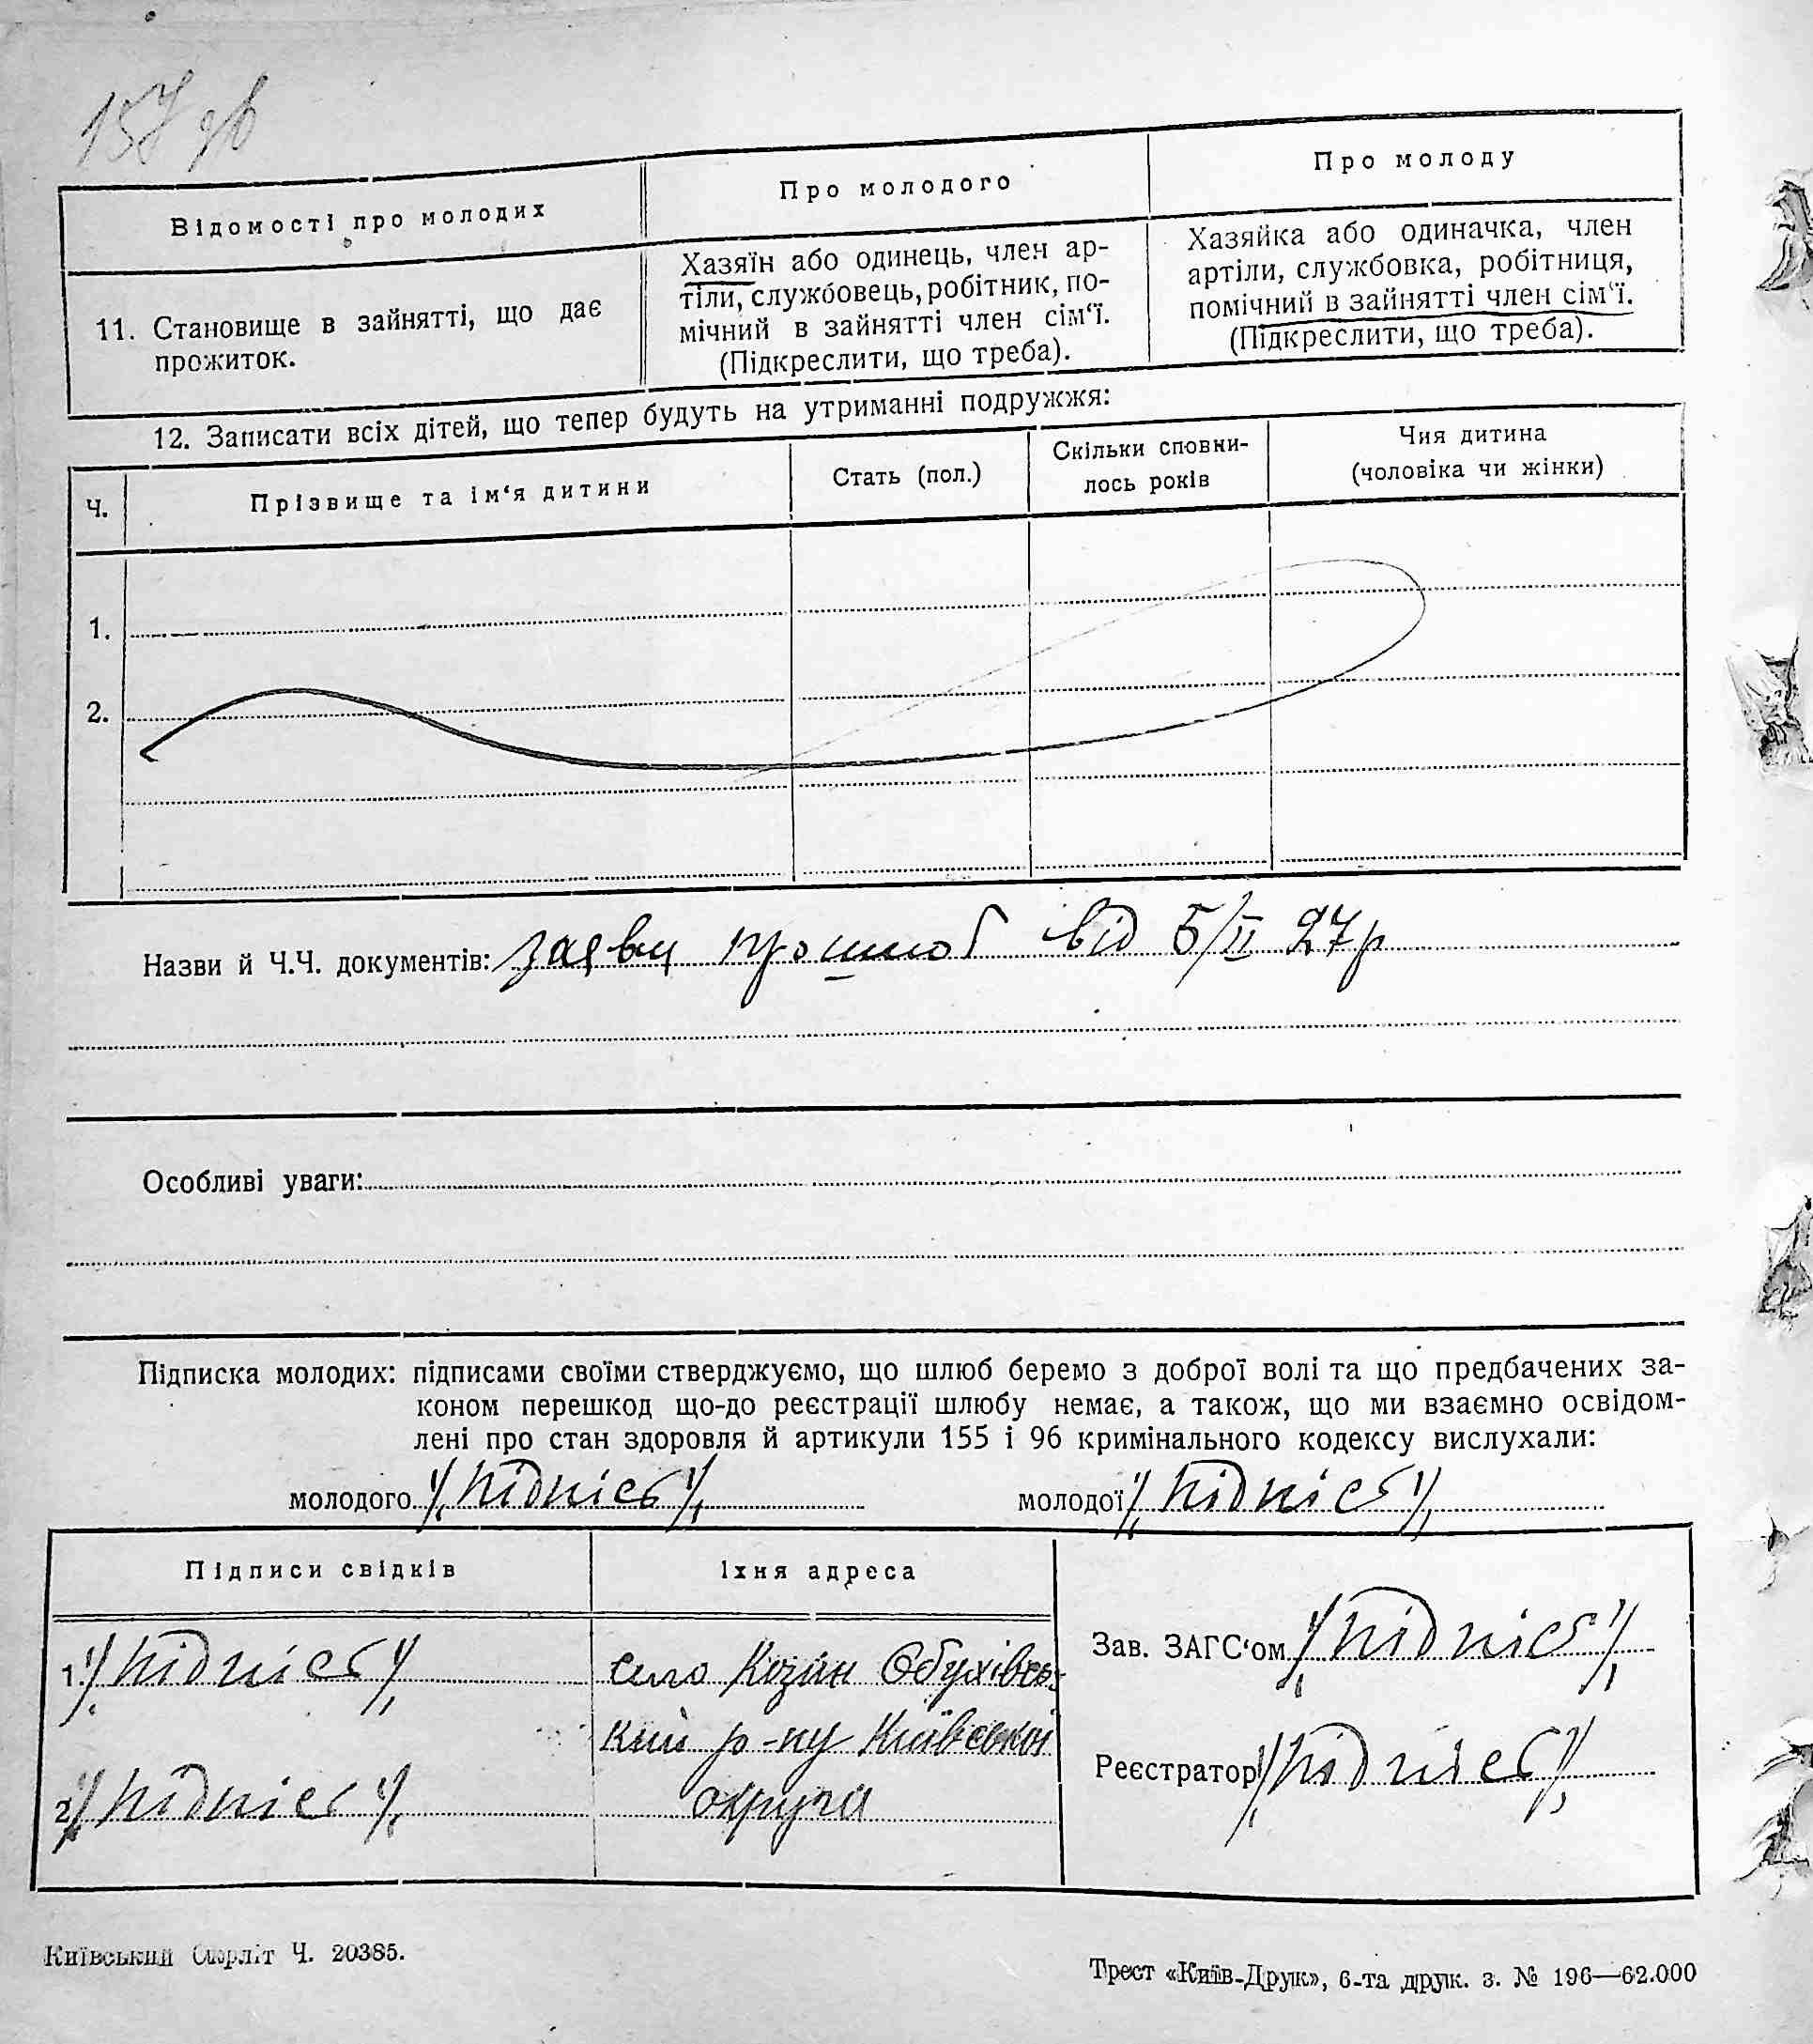 157 зв
Відомості про молодих
Про молодого
Про молоду
11. Становище в зайнятті, що дає
прожиток.
Хазяїн або одинець, член ар-
тіли, службовець, робітник, по-
мічний в зайнятті член сім‘ї.
(Підкреслити, що треба).
Хазяйка або одиначка, член
артіли, службовка, робітниця,
помічний в зайнятті член сім‘ї.
(Підкреслити, що треба).
12. Записати всіх дітей, що тепер будуть на утриманні подружжя:
Ч.
Прізвище та ім‘я дитини
Стать (пол.)
Скільки сповни-
лось років
Чия дитина
(чоловіка чи жінки)
1.
2.
Назви й Ч.Ч. документів: заяви про шлюб від 5/II 27р
Особливі уваги:
Підписка молодих: підписами своїми стверджуємо, що шлюб беремо з доброї волі та що предбачених за-
коном перешкод що-до реєстрації шлюбу немає, а також, що ми взаємно освідом-
лені про стан здоровля й артикули 155 і 96 кримінального кодексу вислухали:
молодого /підпис/ молодої /підпис/
Підписи свідків
Їхня адреса
1. /підпис/
2. /підпис/
село Козин Обухівсь-
кий р-ну Київської
округа
Зав. ЗАГС‘ом /підпис/
Реєстратор /підпис/
Київський Окрліт Ч. 20385.
Трест «Київ-Друк», 6-та друк. з. № 196—62.000